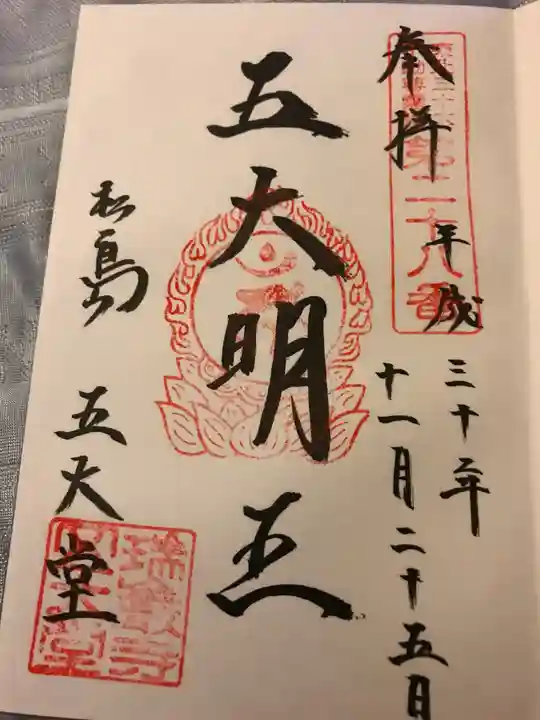 奉拝
平成三十年
十一月二十五日
第二十八番
五大明王
松島
五大堂
瑞巌寺
五大堂